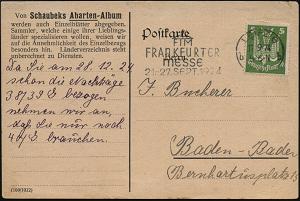 Von Schaubeks Abarten-Album
werden auch Einzelblätter abgegeben.
Sammler, welche einige ihrer Lieblings-
länder spezialisieren wollen, weisen wir
auf die Annehmlichkeit des Einzelbezugs
besonders hin. Länderverzeichnis steht
unberechnet zu Diensten.
Da Sie am 28. 12. 24
schon die Nachträge
38/39 E bezogen
nehmen wir an,
daß Sie nur noch
40/ E brauchen.
(100/1022)
Postkarte
ZUR
FRANKFURTER
MESSE
21-27. SEPT. 1924
5
J. Bucherer
Baden-Baden
Bernhartusplatz